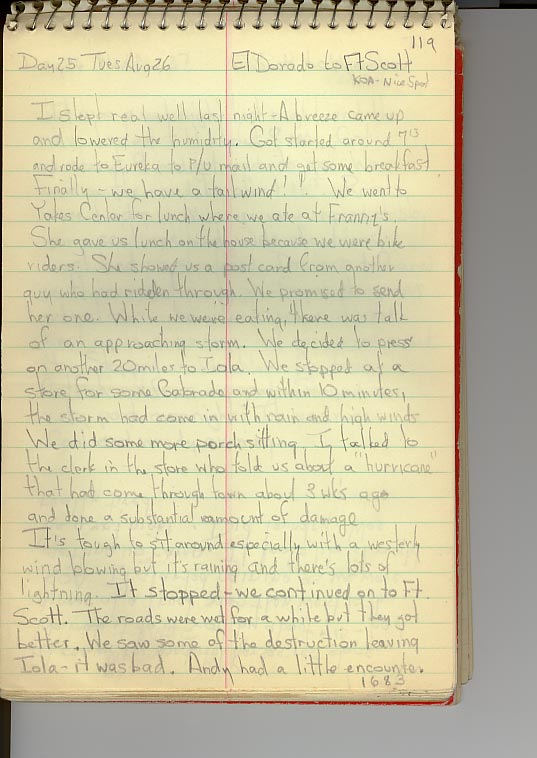 119
Day 25 Tues Aug 26 El Dorado to Ft Scott
KOA - Nice Spot
I slept real well last night - A breeze came up
and lowered the humidity. Got started around 7¹⁵
and rode to Eureka to P/U mail and get some breakfast.
Finally - we have a tailwind!! We went to
Yates Center for lunch where we ate at Franny's.
She gave us lunch on the house because we were bike
riders. She showed us a post card from another
guy who had ridden through. We promised to send
her one. While we were eating, there was talk
of an approaching storm. We decided to press
on another 20 miles to Iola. We stopped at a
store for some Gatorade and within 10 minutes,
the storm had come in with rain and high winds
We did some more porch sitting. I talked to
the clerk in the store who told us about a "hurricane"
that had come through town about 3 wks ago
and done a substantial amount of damage
It's tough to sit around especially with a westerly
wind blowing but it's raining and there's lots of
lightning. It stopped - we continued on to Ft.
Scott. The roads were wet for a while but they got
better. We saw some of the destruction leaving
Iola - it was bad. Andy had a little encounter
1683